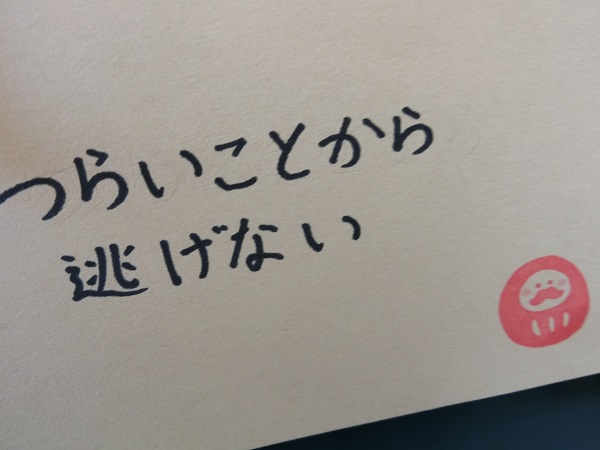 つらいことから
逃げない